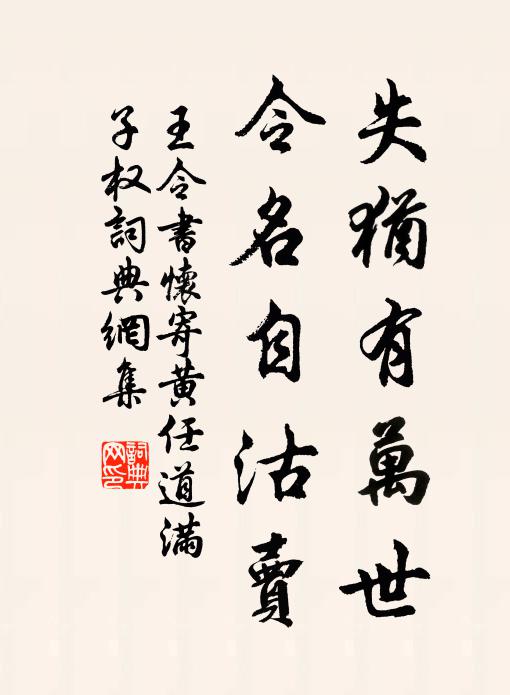 失猶有萬世
令名自沽賣
王令書懷寄黃任道滿
子权詞典網集
詞典
网印